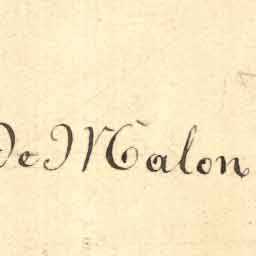 De Malon